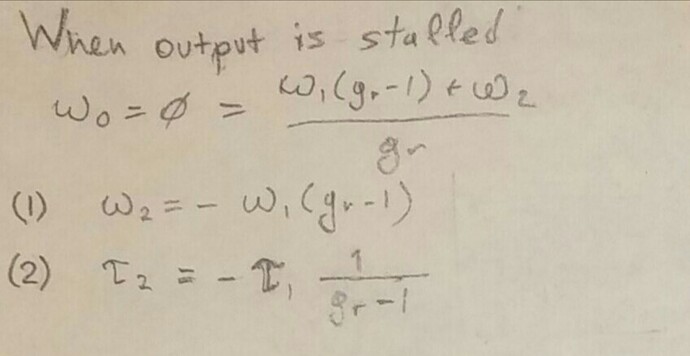 When output is stalled
ω₀ = ∅ = (ω₁(gᵣ-1) + ω₂) / gᵣ
(1) ω₂ = - ω₁(gᵣ-1)
(2) τ₂ = - τ₁ 1/(gᵣ-1)